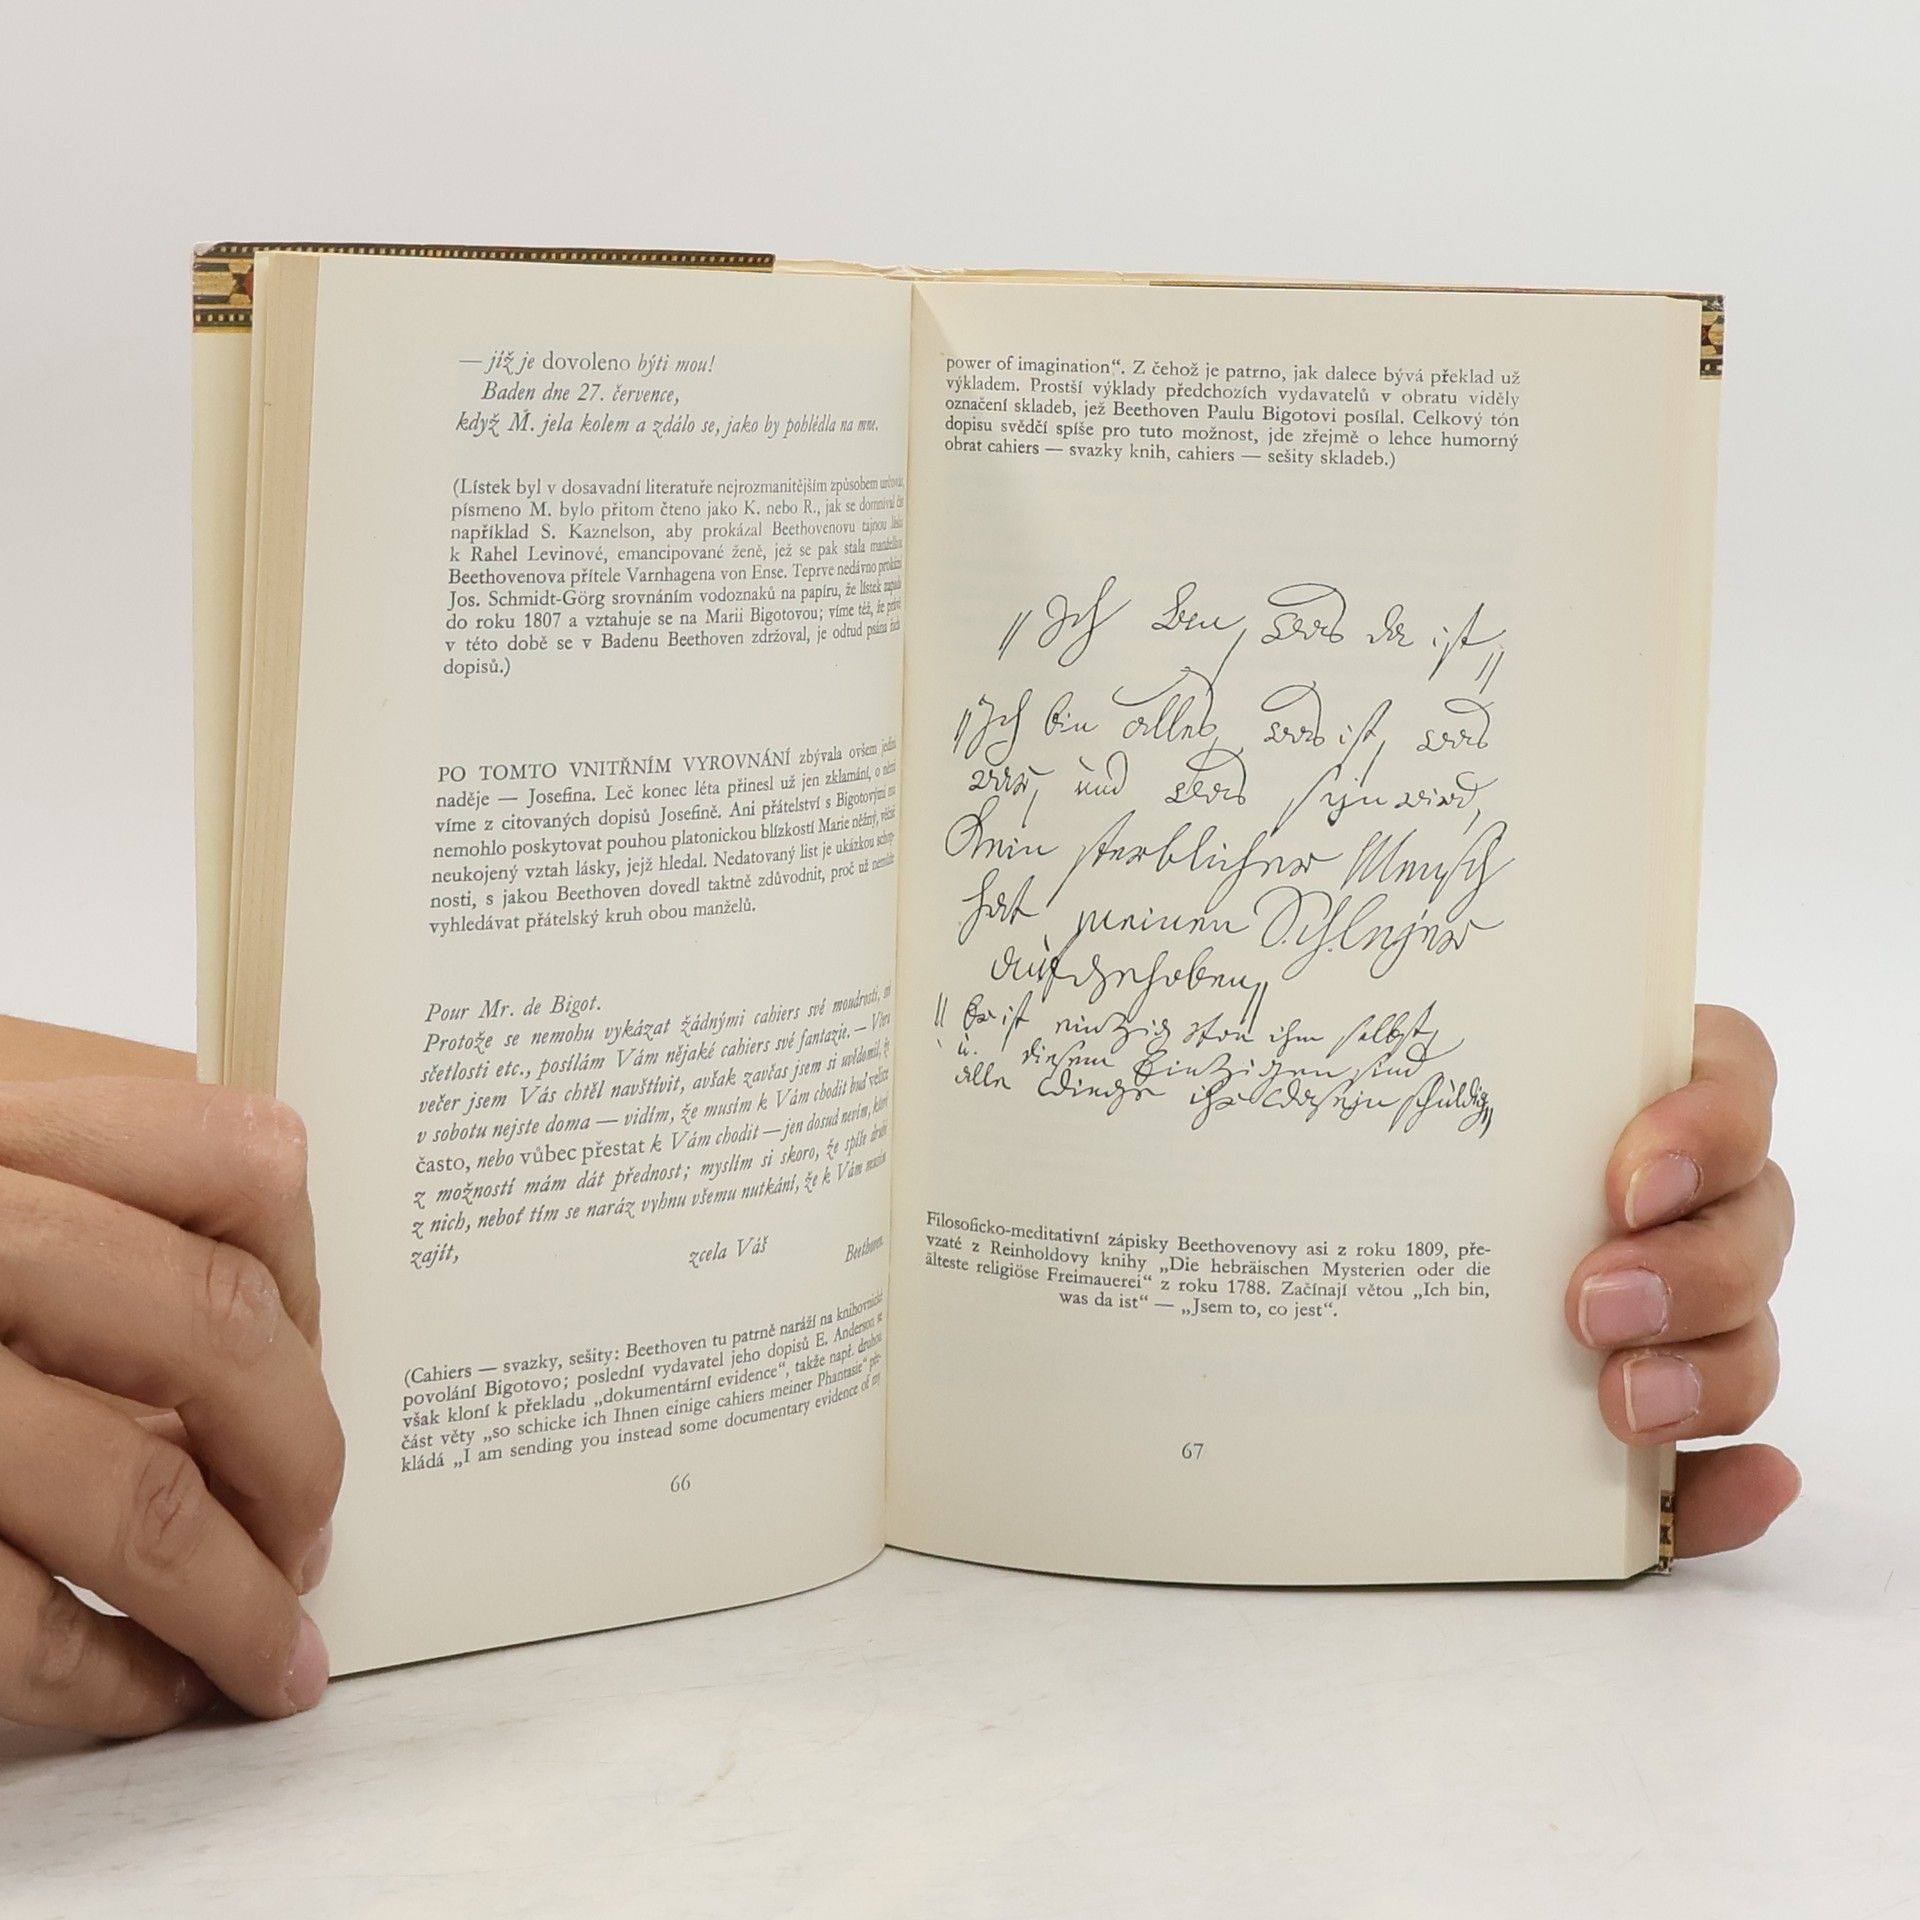 — jíž je dovoleno býti mou!
Baden dne 27. července,
když M. jela kolem a zdálo se, jako by pohlédla na mne.
(Lístek byl v dosavadní literatuře nejrozmanitějším způsobem určován,
písmeno M. bylo přitom čteno jako K. nebo R., jak se domníval čís
například S. Kaznelson, aby prokázal Beethovenovu tajnou lásku
k Rahel Levinové, emancipované ženě, jež se pak stala manželkou
Beethovenova přítele Varnhagena von Ense. Teprve nedávno prokázal
Jos. Schmidt-Görg srovnáním vodoznaků na papíru, že lístek zapadá
do roku 1807 a vztahuje se na Marii Bigotovou; víme též, že právě
v této době se v Badenu Beethoven zdržoval, je odtud psána řada
dopisů.)
PO TOMTO VNITŘNÍM VYROVNÁNÍ zbývala ovšem jediná
naděje — Josefina. Leč konec léta přinesl už jen zklamání, o němž
víme z citovaných dopisů Josefině. Ani přátelství s Bigotovými mu
nemohlo poskytovat pouhou platonickou blízkostí Marie něžný, věčně
neukojený vztah lásky, jejž hledal. Nedatovaný list je ukázkou schop-
nosti, s jakou Beethoven dovedl taktně zdůvodnit, proč už nemůže
vyhledávat přátelský kruh obou manželů.
Pour Mr. de Bigot.
Protože se nemohu vykázat žádnými cahiers své moudrosti, své
sčetlosti etc., posílám Vám nějaké cahiers své fantazie. — Včera
večer jsem Vás chtěl navštívit, avšak zavčas jsem si uvědomil, že
v sobotu nejste doma — vidím, že musím k Vám chodit buď velice
často, nebo vůbec přestat k Vám chodit — jen dosud nevím, které
z možností mám dát přednost; myslím si skoro, že spíše druhé
z nich, neboť tím se naráz vyhnu všemu nutkání, že k Vám musím
zajít,
zcela Váš
Beethoven.
(Cahiers — svazky, sešity: Beethoven tu patrně naráží na knihovnické
povolání Bigotovo; poslední vydavatel jeho dopisů E. Anderson se
však kloní k překladu „dokumentární evidence“, takže např. druhou
část věty „so schicke ich Ihnen einige cahiers meiner Phantasie“ pře-
kládá „I am sending you instead some documentary evidence of my
66
power of imagination“. Z čehož je patrno, jak dalece bývá překlad už
výkladem. Prostší výklady předchozích vydavatelů v obratu viděly
označení skladeb, jež Beethoven Paulu Bigotovi posílal. Celkový tón
dopisu svědčí spíše pro tuto možnost, jde zřejmě o lehce humorný
obrat cahiers — svazky knih, cahiers — sešity skladeb.)
„Ich bin, was da ist„
„Ich bin alles, was ist, was
war, und was seyn wird,
Kein sterblicher Mensch
hat meinen Schleyer
aufgehoben„
„Er ist eintzig von ihm selbst,
u. diesem Eintzigen sind
alle Dinge ihr Daseyn schuldig„
Filosoficko-meditativní zápisky Beethovenovy asi z roku 1809, pře-
vzaté z Reinholdovy knihy „Die hebräischen Mysterien oder die
älteste religiöse Freimauerei“ z roku 1788. Začínají větou „Ich bin,
was da ist“ — „Jsem to, co jest“.
67